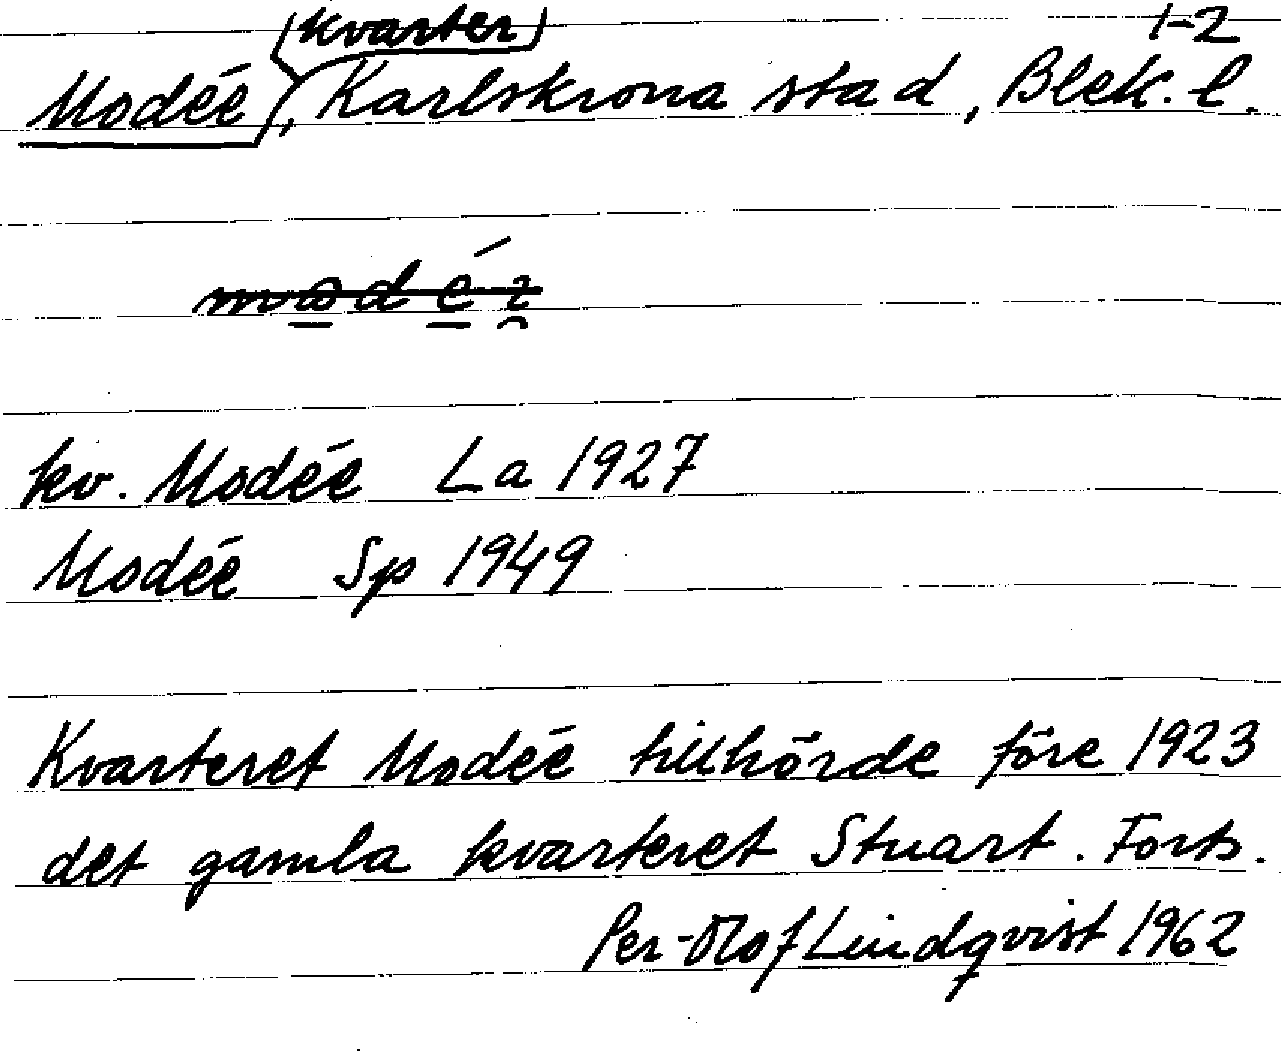 (kvarter) 1-2
Modée, Karlskrona stad, Blek. l.
kv. Modée La 1927
Modée Sp 1949
Kvarteret Modée tillhörde före 1923
det gamla kvarteret Stuart. Forts.
Per-Olof Lindqvist 1962